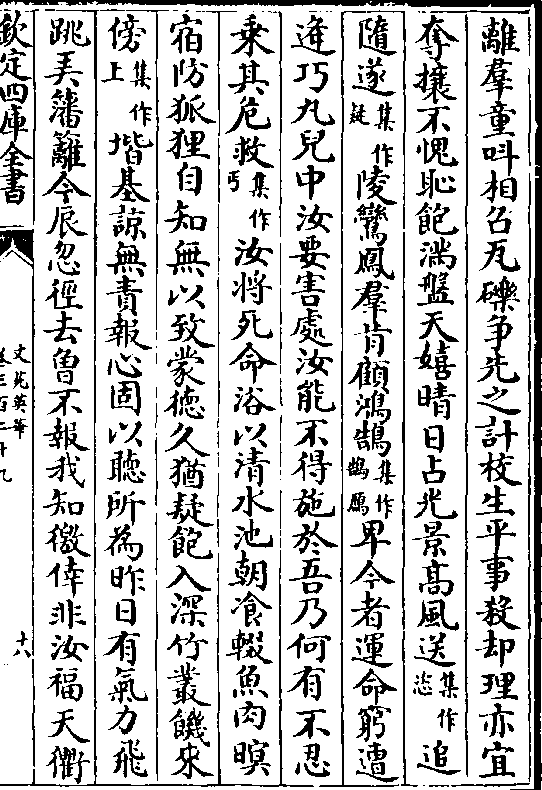 離羣童叫相召瓦礫争先之計校生平事殺却理亦宜
奪攘不愧恥飽滿盤天嬉晴日占光景高風送集作恣追
隨遂集作疑陵鸞鳳羣肯顧鴻鵠集作鵲鴈卑今者運命窮遭
逄巧丸兒中汝要害處汝能不得施於吾乃何有不忍
乗其危救集作丐汝將死命浴以清水池朝飡輟魚肉暝
宿防狐狸自知無以致蒙徳久猶疑飽入深竹叢饑來
傍集作上堦基諒無責報心固以聽所為昨日有氣力飛
跳弄籓籬今辰忽徑去曽不報我知徼倖非汝福天衢
欽定四庫全書
文苑英華
卷三百二十九
十六